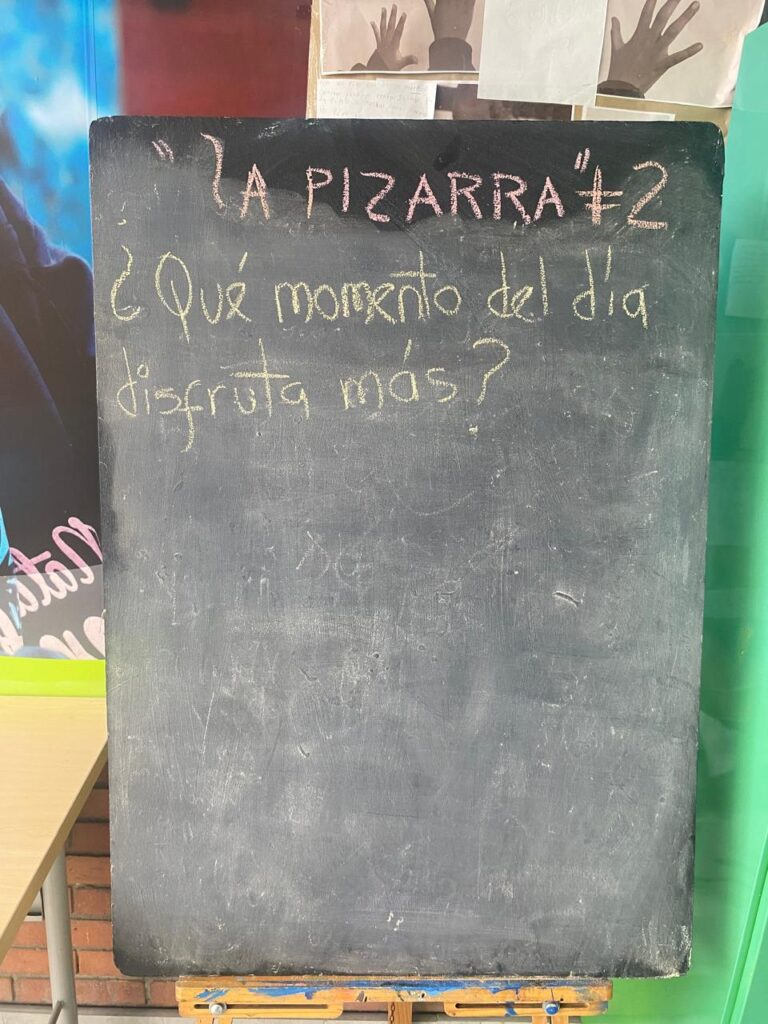 "LA PIZARRA" #2
¿Qué momento del día
disfruta más?